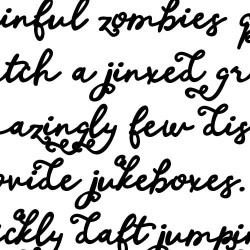 inful zombies
tch a jinxed gr
azingly few dis
ovide jukeboxes.
ickly daft jumpi